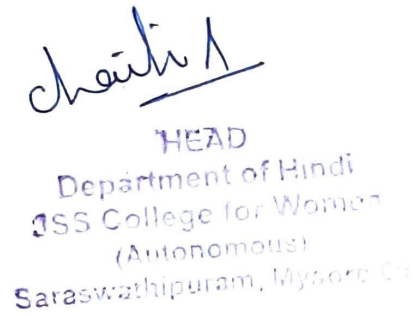 HEAD
Department of Hindi
JSS College for Women
(Autonomous)
Saraswathipuram, Mysore